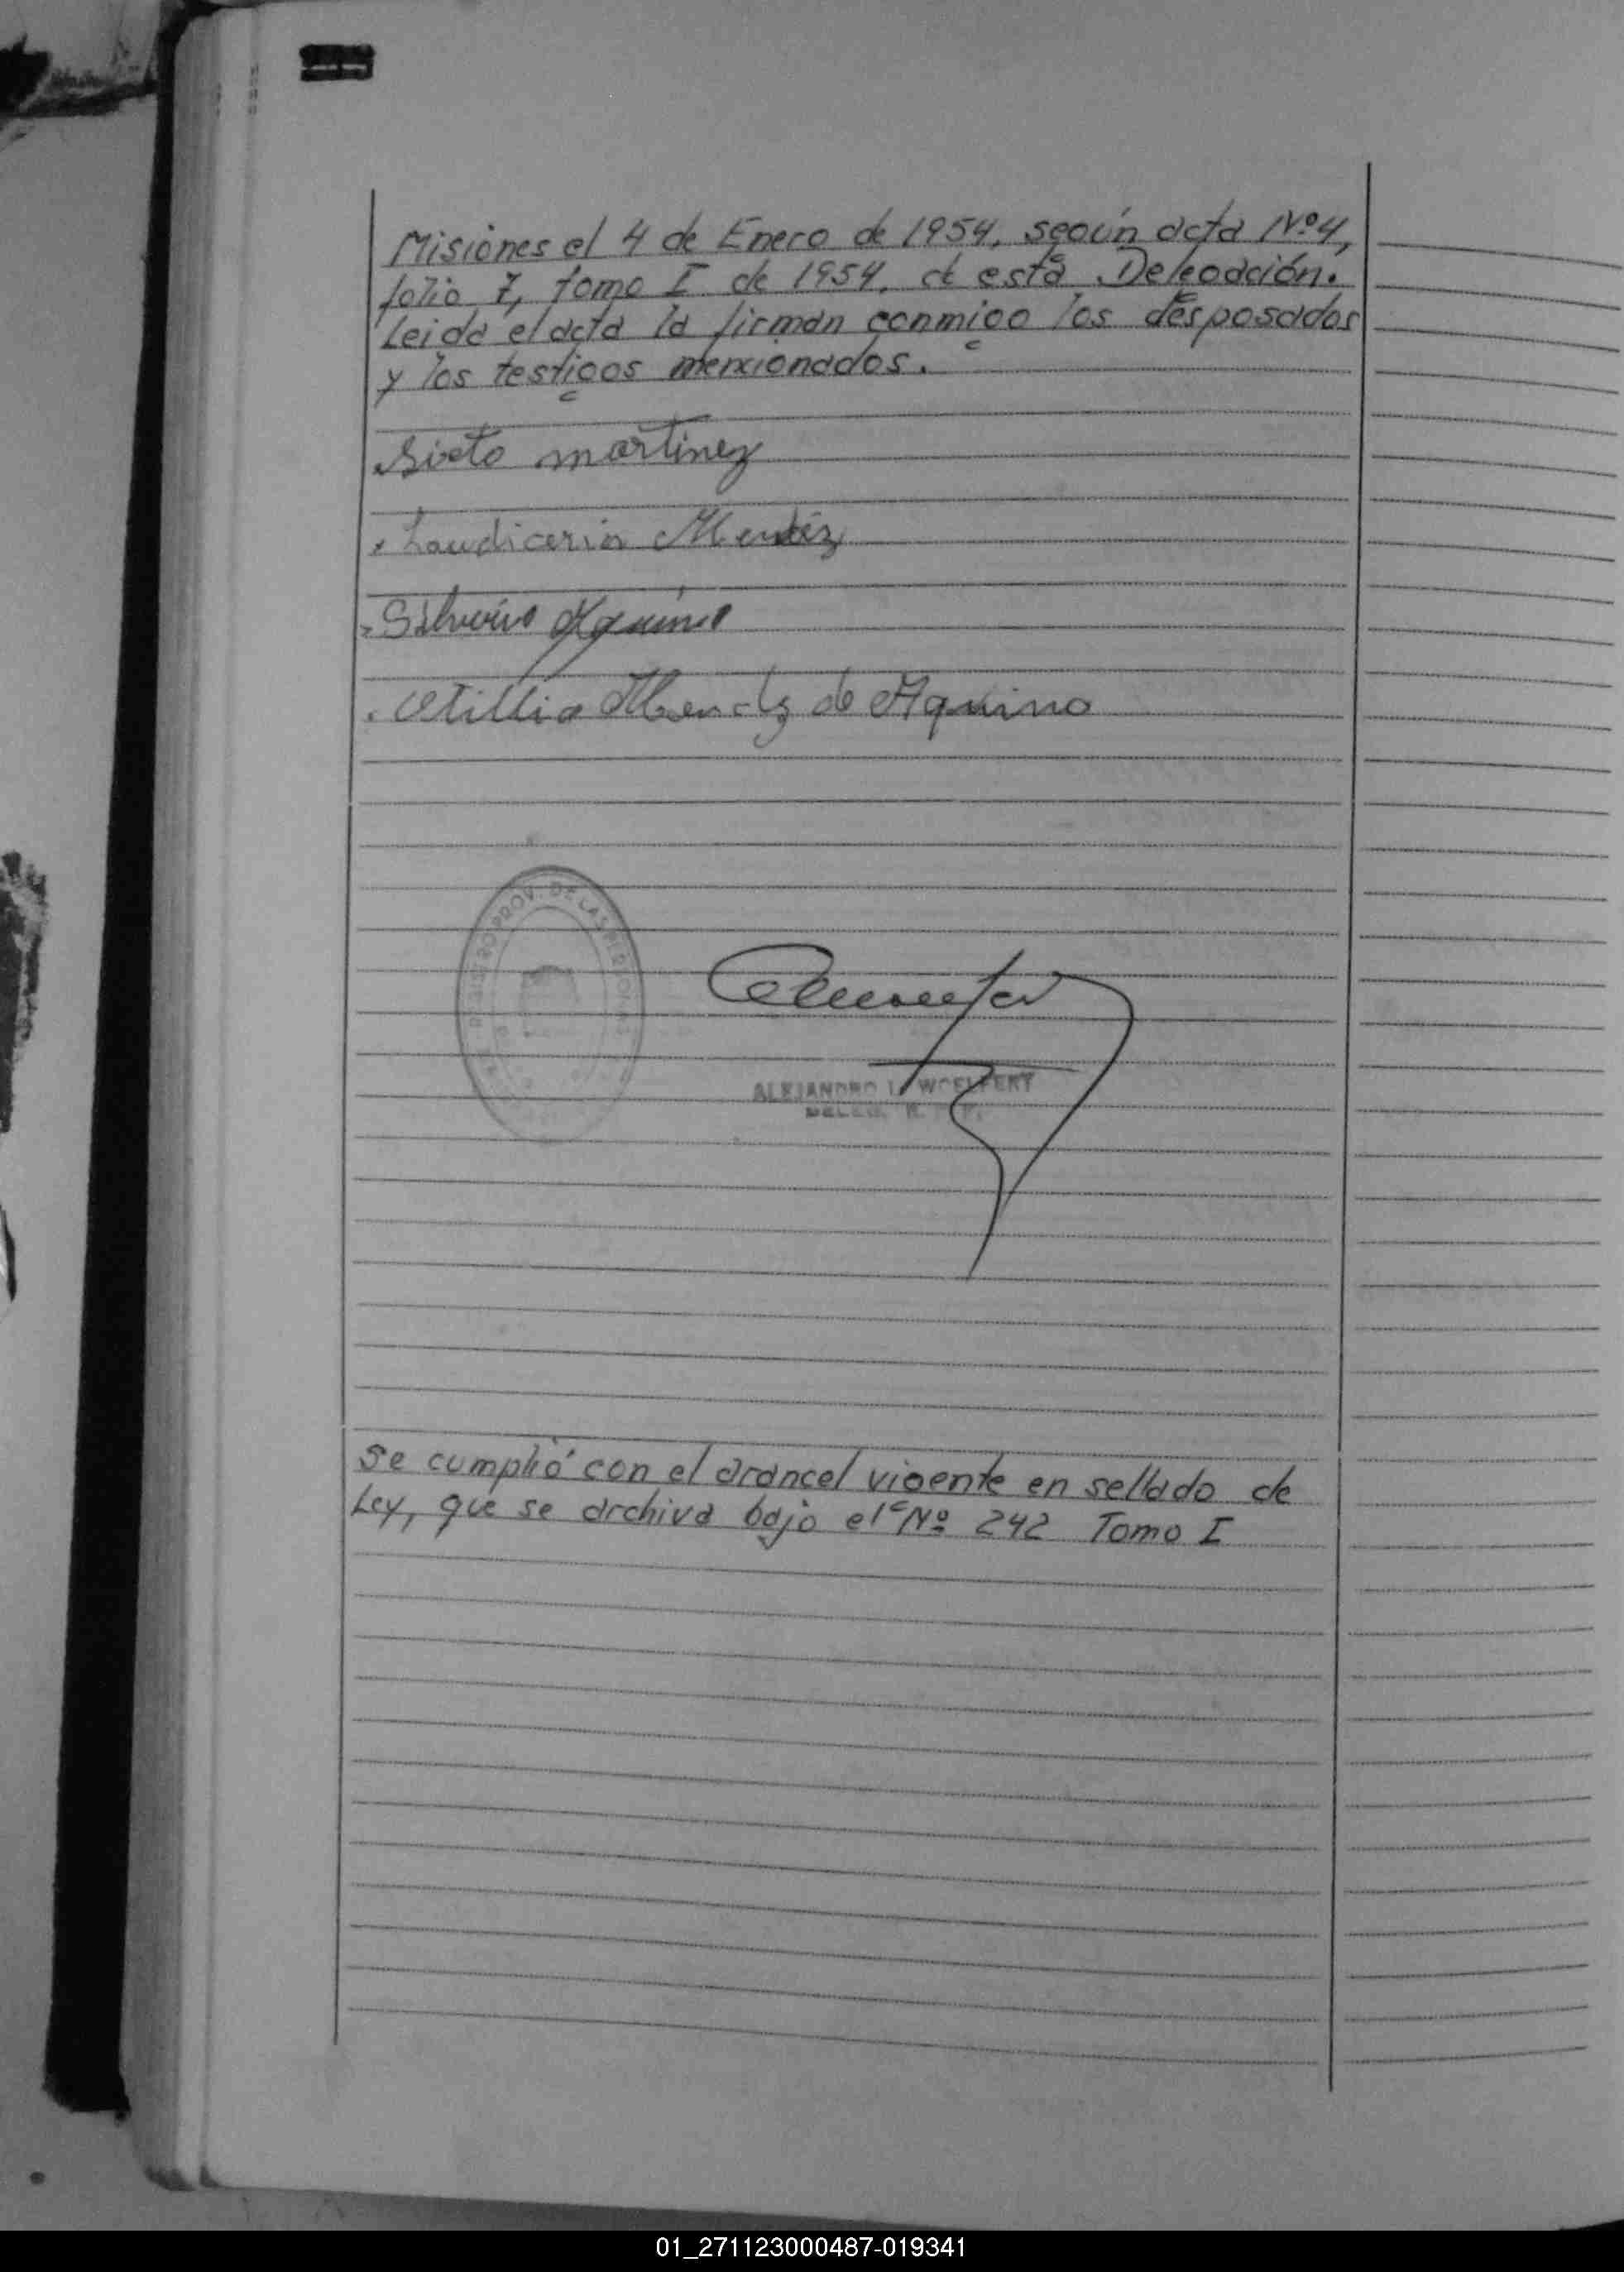 Misiones el 4 de Enero de 1954, según acta Nº4,
folio 7, tomo I de 1954, de esta Delegación.
Leida el acta la firman conmigo los desposados
y los testigos mencionados.
Sixto martinez
Laudiceria Mendéz
Silverio Aquino
Otillia Mendz de Aquino
REGISTRO PROV. DE LAS PERSONAS
ALEJANDRO L. WOELFERT
DELEG. R. P. P.
Se cumplió con el arancel vigente en sellado de
Ley, que se archiva bajo el Nº 242 Tomo I
01_271123000487-019341